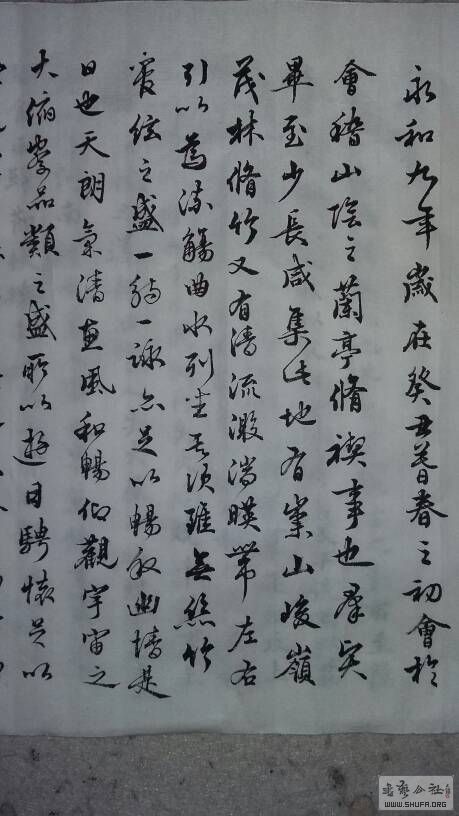 永和九年歲在癸丑暮春之初會於
會稽山陰之蘭亭脩禊事也羣賢
畢至少長咸集此地有崇山峻嶺
茂林脩竹又有清流激湍暎帶左右
引以為流觴曲水列坐其次雖無絲竹
管弦之盛一觴一詠亦足以暢敘幽情是
日也天朗氣清惠風和暢仰觀宇宙之
大俯察品類之盛所以遊目騁懷足以
書藝公社
WWW.SHUFA.ORG